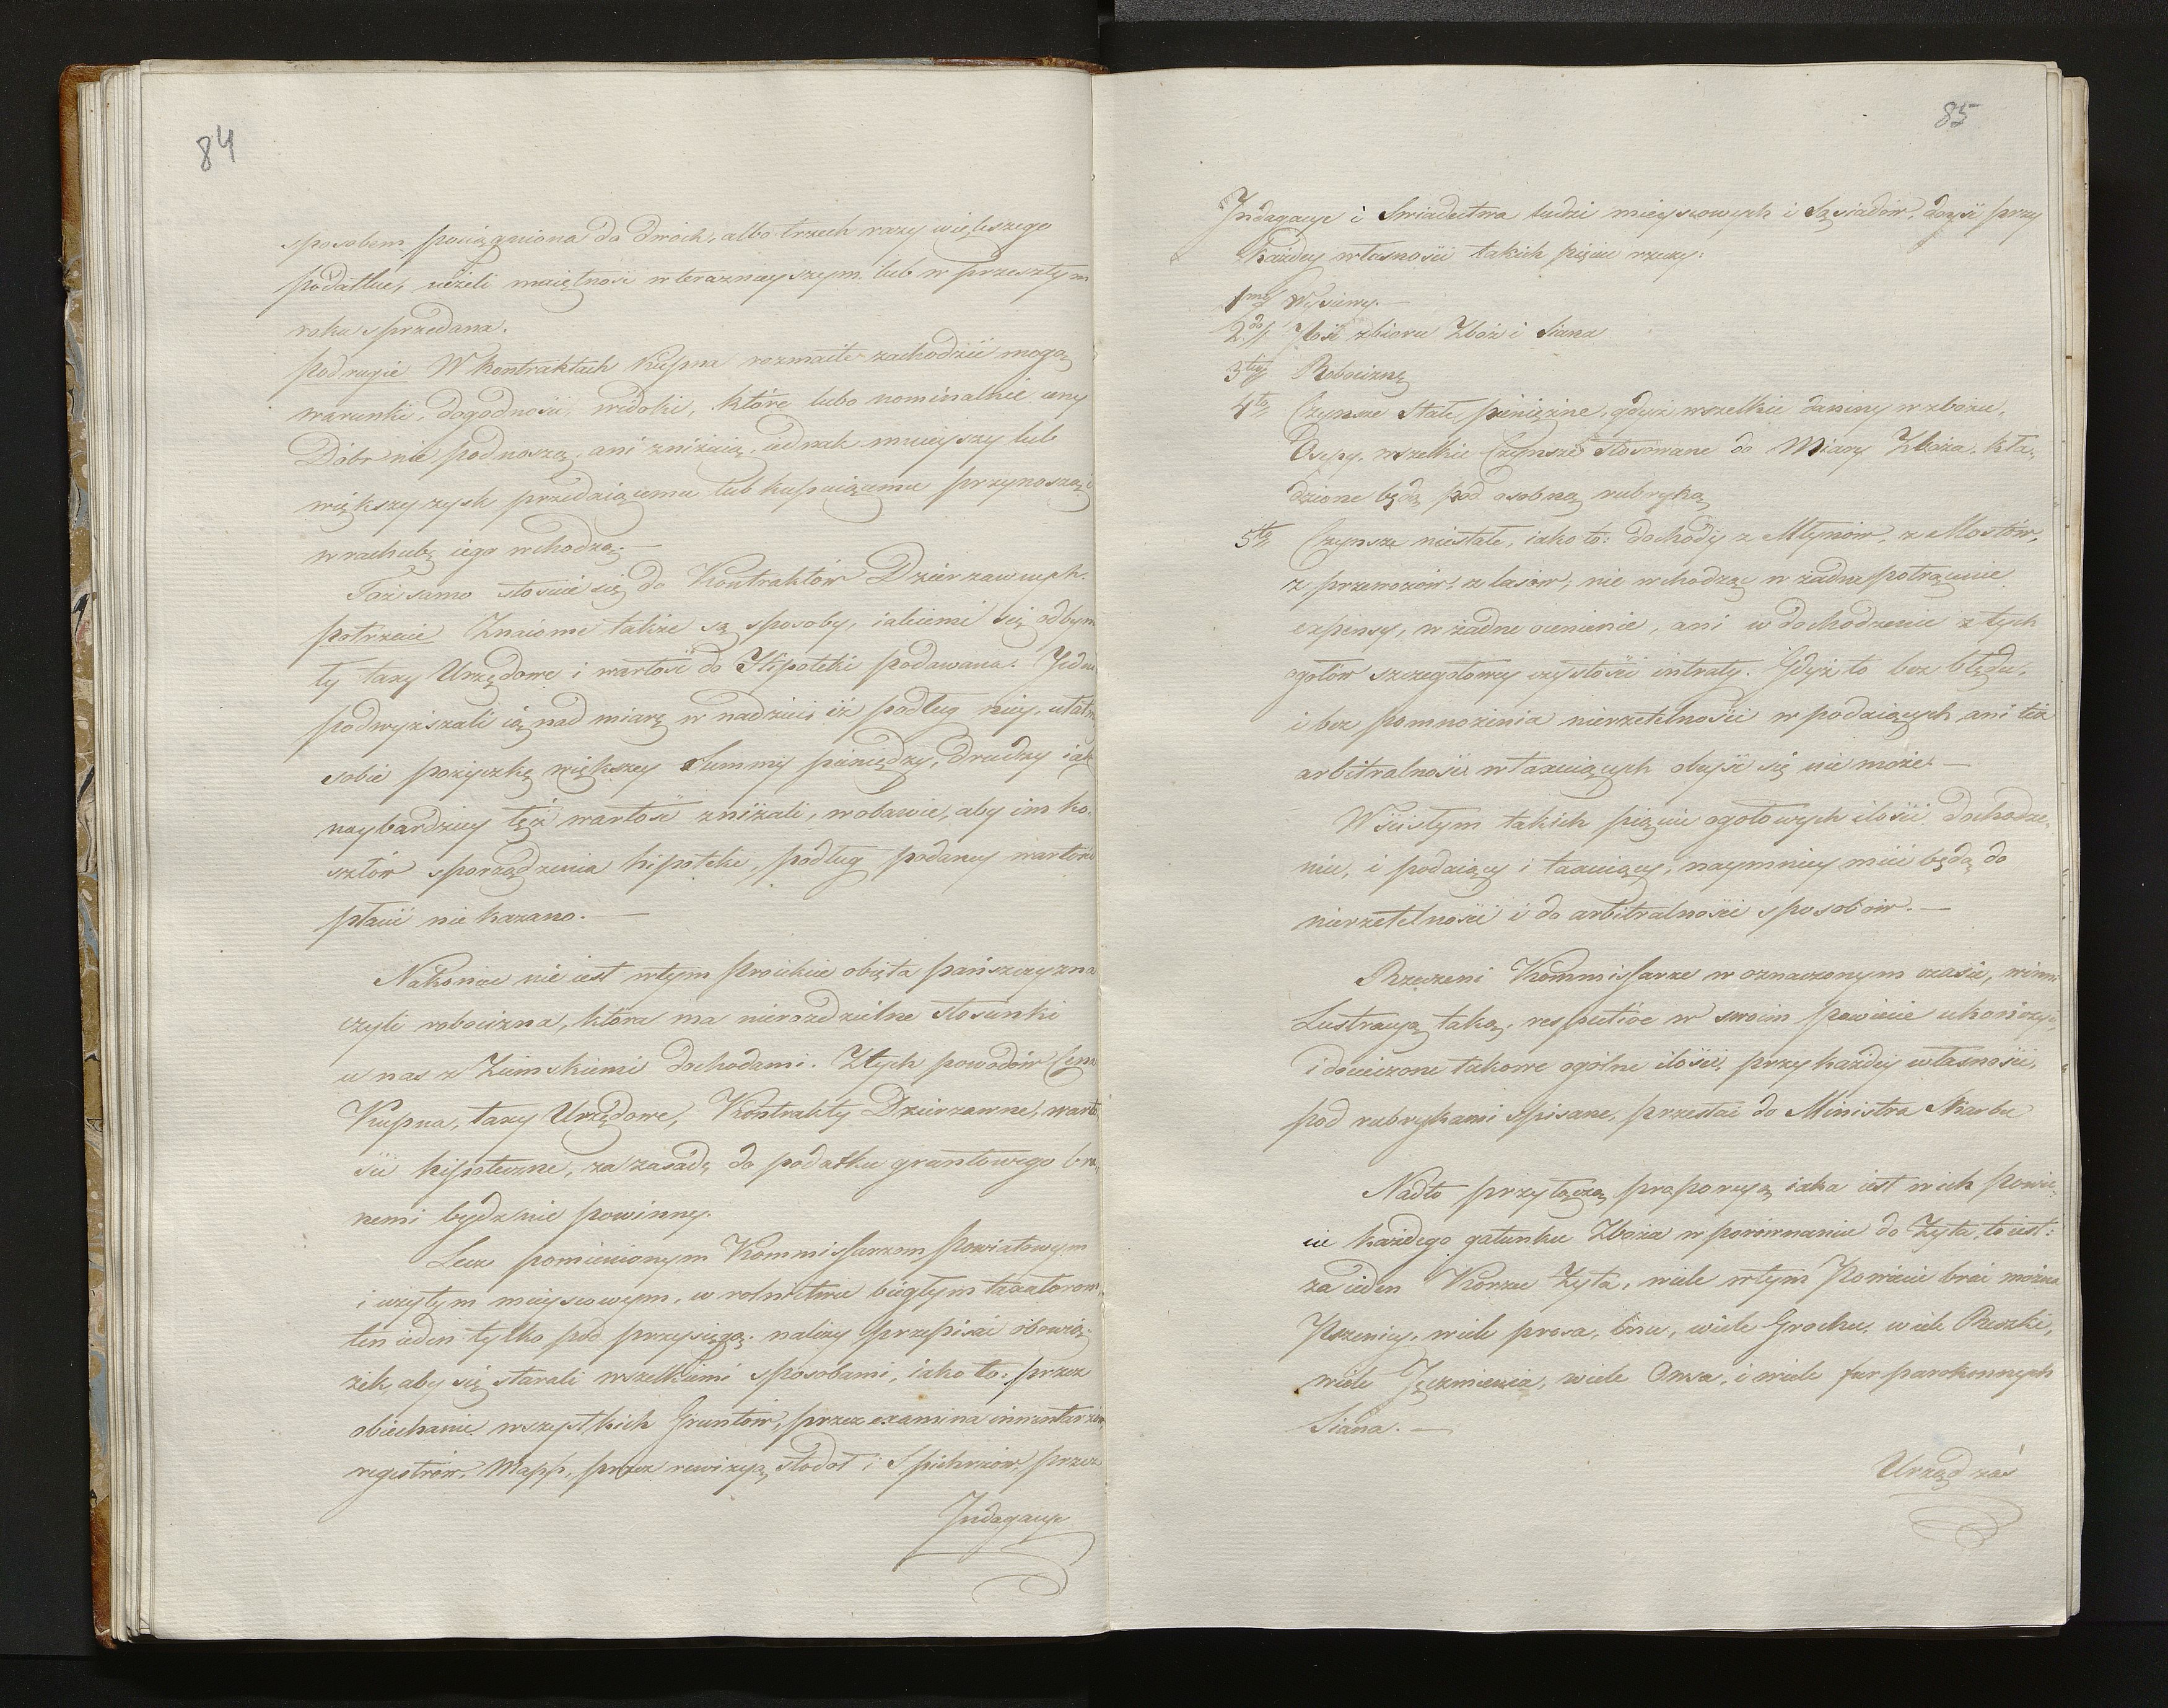 84
sposobem pociągniona do dwóch, albo trzech razy większego
podatku, ieżeli maiętność w teraznayszym lub w przeszłym
roku sprzedana.
Podrugie W Kontraktach Kupna rozmaite zachodzić mogą
warunki, dogodności, widoki, które lubo nominalnie ceny
Dóbr nie podnoszą, ani zniżaią, iednak mnieyszy lub
większy zysk przedaiącemu lub kupuiącemu przynosząc
w rachubę iego wchodzą. —
Toż samo stosuie się do Kontraktów Dzierzawnych.
Potrzecie Znaiome także są sposoby, iakiemi się odby
ły taxy Urzędowe i wartość do Hipoteki podawana. Jedni
podwyższali ią nad miarę w nadziei, iż podług niey, ułatw
sobie pożyczkę większey Summy pieniędzy, drudzy iak
naybardziey tęż wartość zniżali, w obawie, aby im ko
sztów sporządzenia hipoteki, podług podaney wartości
płacić nie kazano. —
Nakoniec nie iest w tym Proiekcie obięta pańszczyzna
czyli robocizna, która ma nierozdzielne stosunki
u nas z Ziemskiemi dochodami. Z tych powodów Ceny
Kupna, taxy Urzędowe, Kontrakty Dzierzawne, warto
ści hipoteczne, za zasadę do podatku gruntowego bra
nemi bydź nie powinny.
Lecz pomienionym Kommissarzom Powiatowym
i wziętym mieyscowym, w rolnictwie biegłym taxatorom,
ten ieden tylko pod przysięgą, należy przepisać obowią
zek, aby się starali wszelkiemi sposobami, iako to: przez
obiechanie wszystkich Gruntów, przez examina inwentarzów,
regestrów, Mapp, przez rewizyą stodoł i Spichrzów, przez
Indagacye
85
Indagacye i Swiadectwa ludzi mieyscowych i Sąsiadów, doyść przy
Każdey własności takich pięciu rzeczy:
1mo Wysiewy. —
2do Ilość zbioru Zbóż i Siana
3tio Robociznę
4to Czynsze Stałe pieniężne, gdyż wszelkie daniny w zbożu,
Osepy, wszelkie Czynsze stosowane do Miary Zboża, kła„
dzione będą pod osobną rubryką
5to Czynsze niestałe, iako to: dochody z Młynów, z Mostów,
z przewozów, z lasów; nie wchodząc w żadne potrącenie
expensy, w żadne ocenienie, ani w dochodzenie z tych
ogołów szczegołowey czystości intraty. Gdyż to bez błędu,
i bez pomnożenia nierzetelności w podaiących, ani też
arbitralności w taxuiących obeyść się nie może. —
W ścisłym takich pięciu ogołowych ilości dochodze„
niu, i podaiący i taxuiący, naymniey mieć będą do
nierzetelności i do arbitralności sposobów. —
Rzeczeni Kommissarze w oznaczonym czasie, winni
Lustracyą taką, respective w swoim Powiecie ukończyć,
i dociezone takowe ogólne ilości, przy każdey własności,
pod rubrykami spisane, przesłać do Ministra Skarbu
Nadto przyłączą proporcyą iaka iest w ich Powie„
cie każdego gatunku Zboża w porównaniu do Żyta, to iest:
za ieden Korzec Żyta, wiele w tym Powiecie brać można
Pszenicy, wiele prosa, lnu, wiele Grochu, wiele Reczki,
wiele Jęczmienia, wiele Owsa, i wiele fur parokonnych
Siana. —
Urząd zaś